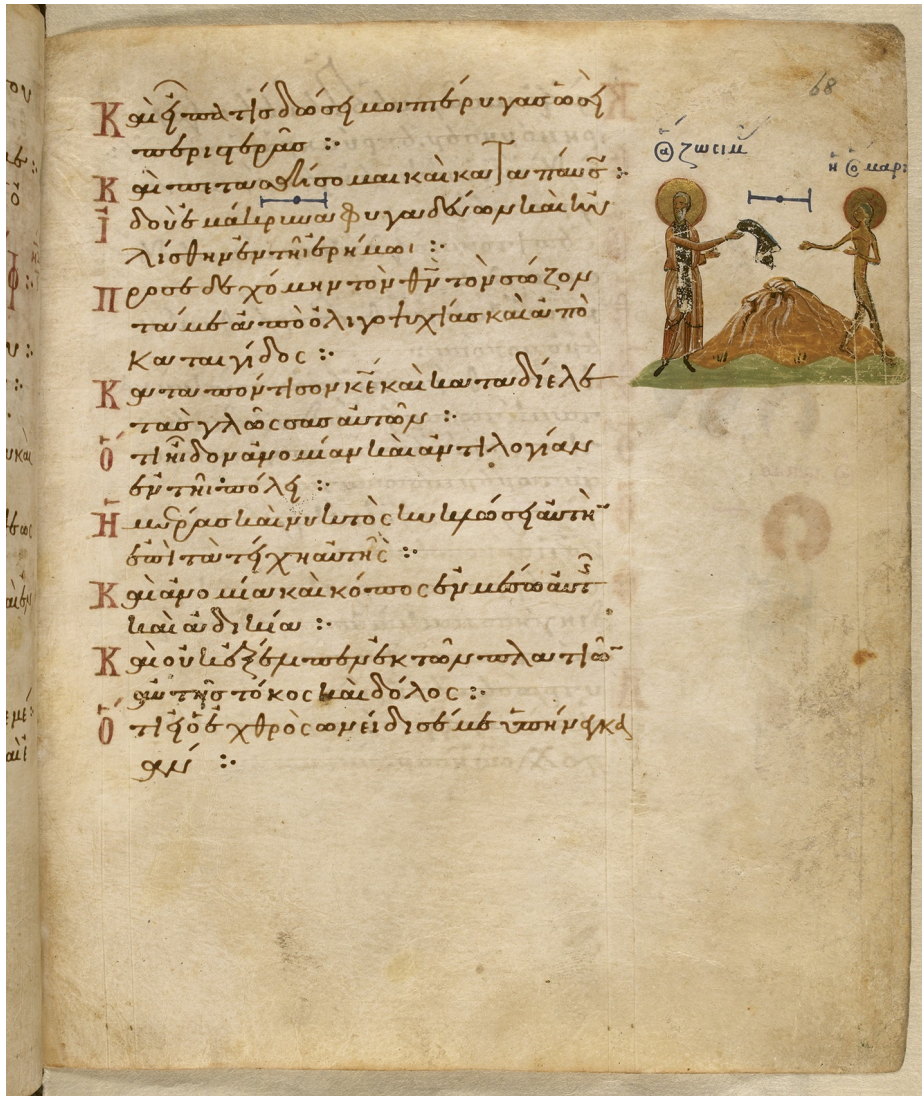 68
ὁ ἅ ζωσιμ
ἡ ὁ μαρ:
Καὶ εἶπα τίς δώσει μοι πτέρυγας ὡσεὶ
περιστερᾶς :·
Καὶ πετασθήσομαι καὶ καταπαύσ :·
Ἰδοὺ ἐμάκρυνα φυγαδεύων καὶ ηὐ
λίσθην ἐν τῆι ἐρήμωι :·
Προσεδεχόμην τὸν θν̄ τὸν σώζον
τά με ἀπὸ ὀλιγοψυχίας καὶ ἀπὸ
καταιγίδος :·
Καταπόντισον κε̄ καὶ καταδίελε
τὰς γλώσσας αὐτῶν :·
Ὅτι ἴδον ἀνομίαν καὶ ἀντιλογίαν
ἐν τῆι πόλει :·
Ἡμέρας καὶ νυκτὸς κυκλώσει αὐτὴν
ἐπὶ τὰ τείχη αὐτῆς :·
Καὶ ἀνομία καὶ κόπος ἐν μέσω αὐτ
καὶ ἀδικία :·
Καὶ οὐκ ἐξέλιπεν ἐκ τῶν πλατιῶ
αὐτῆς τόκος καὶ δόλος :·
Ὅτι εἰ ὁ ἐχθρὸς ὠνείδισέ με ὑπήνεγκα
ἄν :·